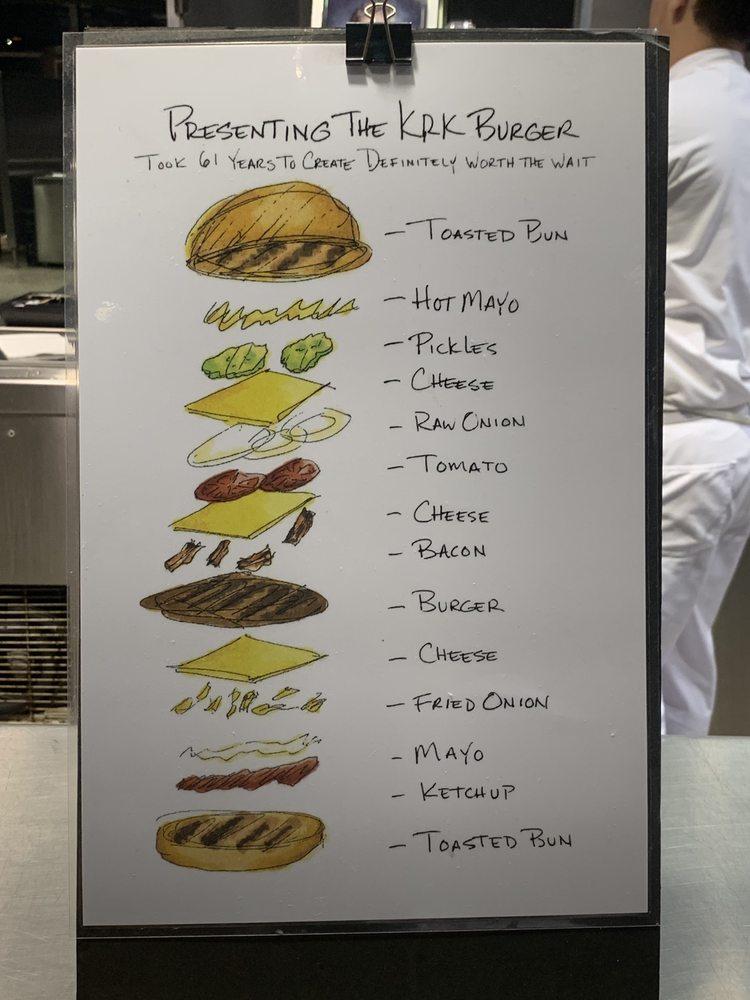 PRESENTING THE KRK BURGER
TOOK 61 YEARS TO CREATE DEFINITELY WORTH THE WAIT
- TOASTED BUN
- HOT MAYO
- PICKLES
- CHEESE
- RAW ONION
- TOMATO
- CHEESE
- BACON
- BURGER
- CHEESE
- FRIED ONION
- MAYO
- KETCHUP
- TOASTED BUN